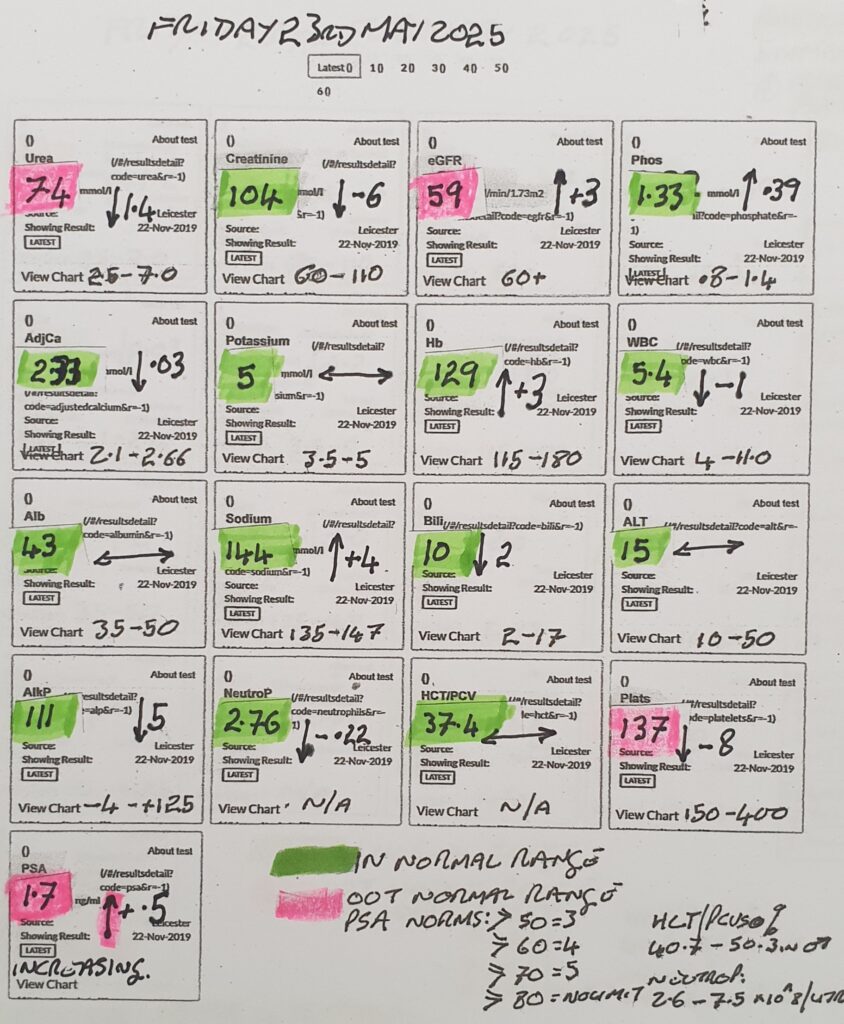 FRIDAY 23RD MAY 2025
Latest 0 10 20 30 40 50
60
()
About test
Urea
(/#/resultsdetail?
code=urea&r=-1)
7.4 mmol/l ↓ 1.4
Source: Leicester
Showing Result: 22-Nov-2019
LATEST
View Chart 2.5-7.0
()
About test
Creatinine
(/#/resultsdetail?
104 mol/l ↓ -6
&r=-1)
Source: Leicester
Showing Result: 22-Nov-2019
LATEST
View Chart 60-110
()
About test
eGFR
59 l/min/1.73m2 ↑ +3
etail?code=egfr&r=-1)
Source: Leicester
Showing Result: 22-Nov-2019
LATEST
View Chart 60+
()
About test
Phos
1.33 mmol/l ↑ .39
il?code=phosphate&r=-
1)
Source: Leicester
Showing Result: 22-Nov-2019
LATEST
View Chart .8-1.4
()
About test
AdjCa
233 mmol/l ↓ .03
(/#/resultsdetail?
code=adjustedcalcium&r=-1)
Source: Leicester
Showing Result: 22-Nov-2019
LATEST
View Chart 2.1-2.66
()
About test
Potassium
(/#/resultsdetail?
5 mmol/l ↔
sium&r=-1)
Source: Leicester
Showing Result: 22-Nov-2019
LATEST
View Chart 3.5-5
()
About test
Hb
(/#/resultsdetail?
code=hb&r=-1)
129 ↑ +3
Source: Leicester
Showing Result: 22-Nov-2019
LATEST
View Chart 115-180
()
About test
WBC
(/#/resultsdetail?
ode=wbc&r=-1)
5.4 ↓ -1
Source: Leicester
Showing Result: 22-Nov-2019
LATEST
View Chart 4-11.0
()
About test
Alb
(/#/resultsdetail?
code=albumin&r=-1)
43 ↔
Source: Leicester
Showing Result: 22-Nov-2019
LATEST
View Chart 35-50
()
About test
Sodium
(/#/resultsdetail?
144 mmol/l ↑ +4
code=sodium&r=-1)
Source: Leicester
Showing Result: 22-Nov-2019
LATEST
View Chart 135-147
()
About test
Bili (/#/resultsdetail?code=bili&r=-1)
10 ↓ 2
Source: Leicester
Showing Result: 22-Nov-2019
LATEST
View Chart 2-17
()
About test
ALT (/#/resultsdetail?code=alt&r=-
15 ↔
Source: Leicester
Showing Result: 22-Nov-2019
LATEST
View Chart 10-50
()
About test
AlkP
esultsdetail?
=alp&r=-1)
111 ↓ 5
Source: Leicester
Showing Result: 22-Nov-2019
LATEST
View Chart -4-+125
()
About test
NeutroP
(/#/resultsdetail?
code=neutrophils&r=-
1)
2.76 ↓ -.22
Source: Leicester
Showing Result: 22-Nov-2019
LATEST
View Chart N/A
()
About test
HCT/PCV
(/#/resultsdetail?
le=hct&r=-1)
37.4 ↔
Source: Leicester
Showing Result: 22-Nov-2019
LATEST
View Chart N/A
()
About test
Plats
(/#/resultsdetail?
de=platelets&r=-1)
137 ↓ -8
Source: Leicester
Showing Result: 22-Nov-2019
LATEST
View Chart 150-400
()
About test
PSA
(/#/resultsdetail?
code=psa&r=-1)
1.7 ng/ml ↑ +.5
Source: Leicester
Showing Result: 22-Nov-2019
LATEST
INCREASING.
View Chart
IN NORMAL RANGE
OOT NORMAL RANGE
PSA NORMS: > 50=3
> 60=4
> 70=5
> 80=NOLIMIT
HCT/PCV
40.7-50.3 IN ♂
NEUTROP:
2.6-7.5 x10^8/LITR